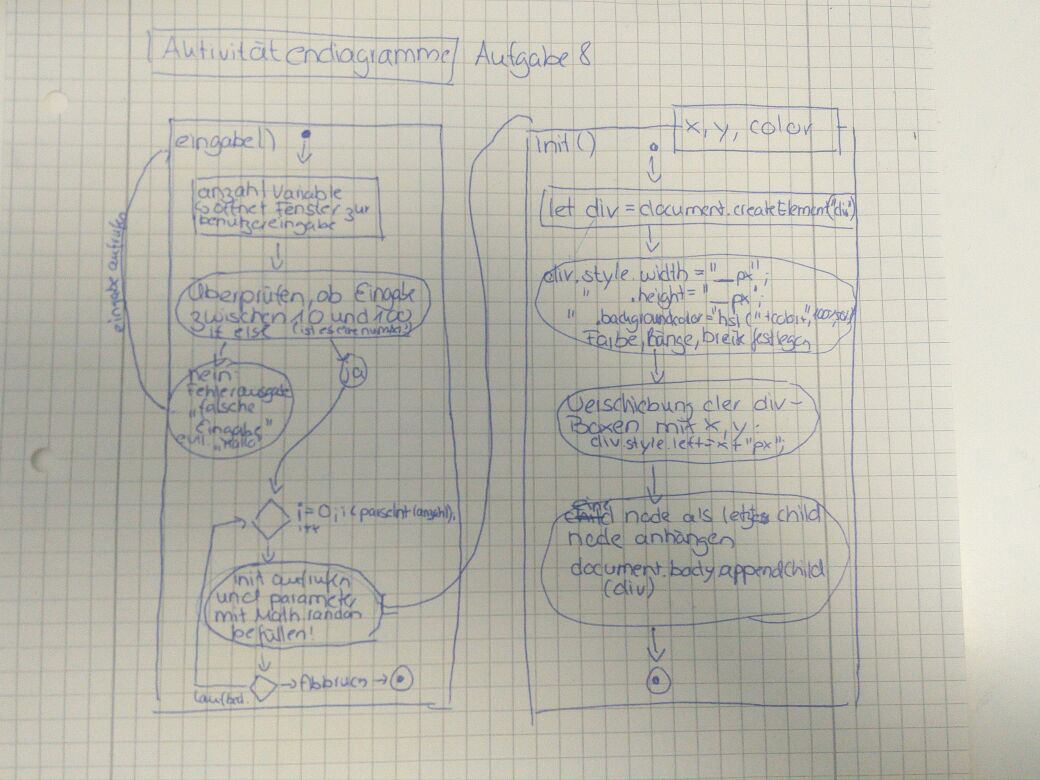 Aktivitätendiagramme Aufgabe 8
eingabe()
anzahl Variable
↳ öffnet Fenster zur
benutzereingabe
Überprüfen, ob Eingabe
zwischen 10 und 100
if else (ist es eine number?)
nein:
Fehlerausgabe
"falsche
Eingabe"
evtl. "Hallo"
ja
eingabe aufrufen
i=0; i< parseInt(anzahl);
i++
init aufrufen
und parameter
mit Math.random
befüllen!
Abbruch
init()
x, y, color
let div = document.createElement("div")
div.style.width = "__px";
" .height = "__px";
" .backgroundcolor = "hsl("+color+",
Farbe, Hänge, breite festlegen
Verschiebung der div-
Boxen mit x, y:
div.style.left = x + "px";
eine
child node als letztes child
node anhängen
document.body.appendChild
(div)